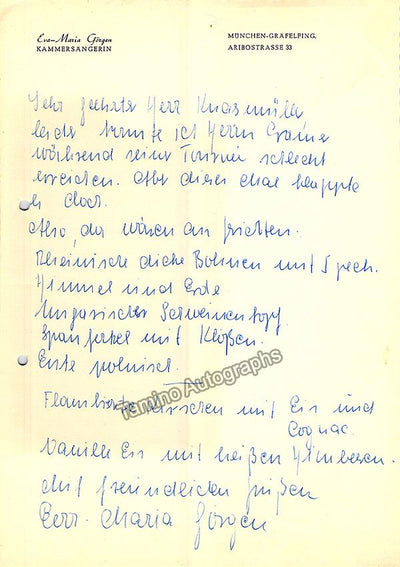 Eva-Maria Görgen
KAMMERSÄNGERIN
MÜNCHEN-GRÄFELFING,
ARIBOSTRASSE 33
Sehr geehrter Herr
leider konnte ich Herrn
während seiner Tournee schlecht
erreichen. Aber dieses Mal klappte
es doch.
Also, da wären an
Rheinische dicke Bohnen mit Speck.
Himmel und Erde
Ungarischer Schweinentopf
Spanferkel mit Klößen.
Ente polnisch.
Tamino Autographs
Flambierte Kirschen mit Eis und
Cognac.
Vanille Eis mit heißen Himbeeren.
Mit freundlichen Grüßen
Maria Görgen